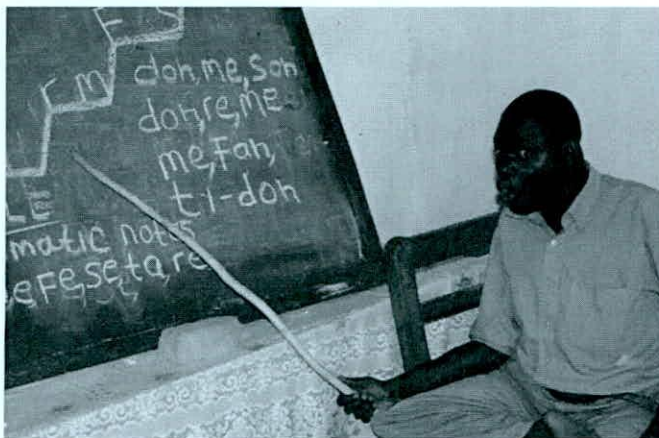 F S
r m
doh, me, soh
doh, re, me
me, Fah,
ti-doh
LE
matic notes
e, Fe, se, ta, re